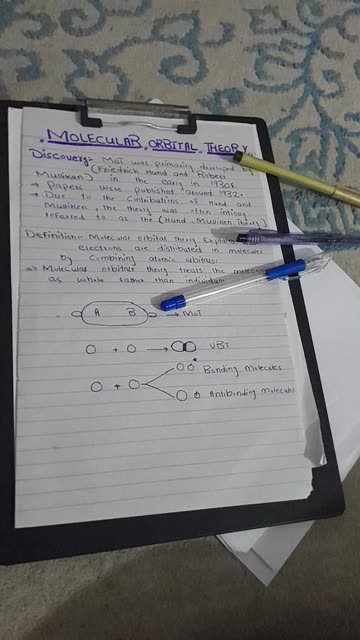 MOLECULAR ORBITAL THEORY
Discovery:- MOT was primarily developed by
(Friedrich Hund and Robert
Mulliken) in the early in 1930s.
→ Papers were published around 1932.
→ Due to the contributions of Hund and
Mulliken the theory was often
referred to as the (Hund-Mulliken Theory)
Definition:- Molecular orbital theory Explains
electrons are distributed in molecules
by combining atomic orbitals.
Molecular orbitals theory treats the molecule
as whole rather than individual
A B → MOT
+ → VBT
Bonding Molecules
+
Antibonding Molecules